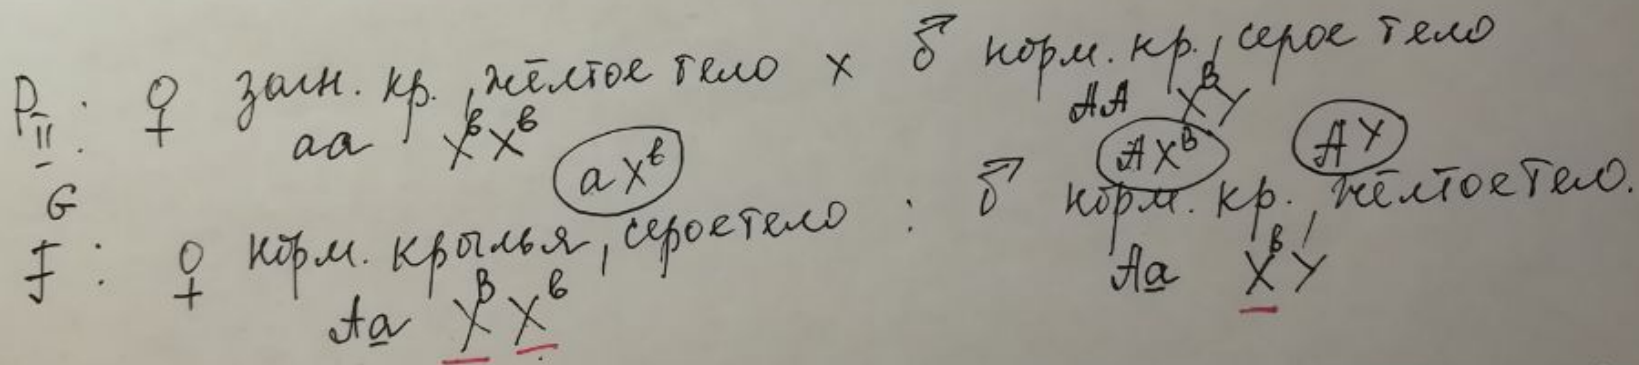 P II : ♀ загн. кр., жёлтое тело × ♂ норм. кр., серое тело
аа XᵇXᵇ AA XᴮY
G аXᵇ AXᴮ AY
F : ♀ норм. крылья, серое тело : ♂ норм. кр., жёлтое тело.
Aа XᴮXᵇ Aа XᴮY